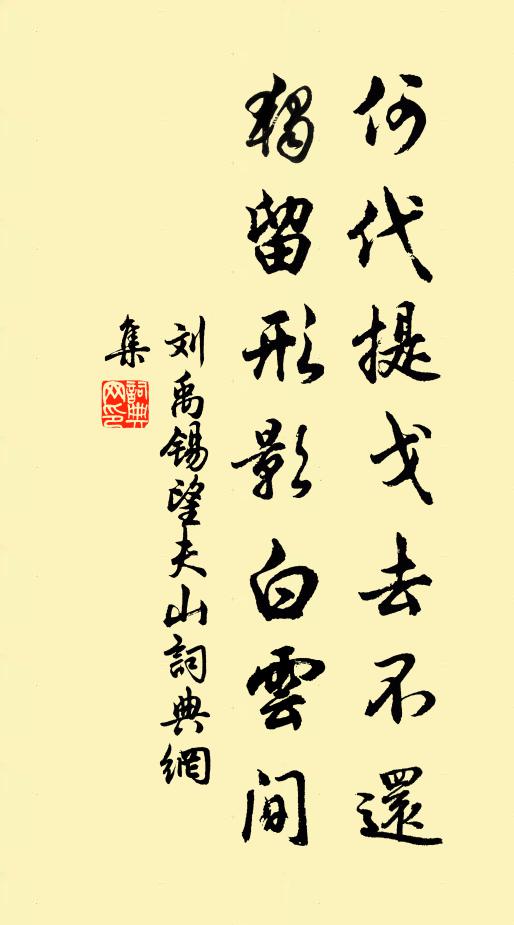 何代提戈去不還
獨留形影白雲間
刘禹锡望夫山詞典網
集
詞典
网印